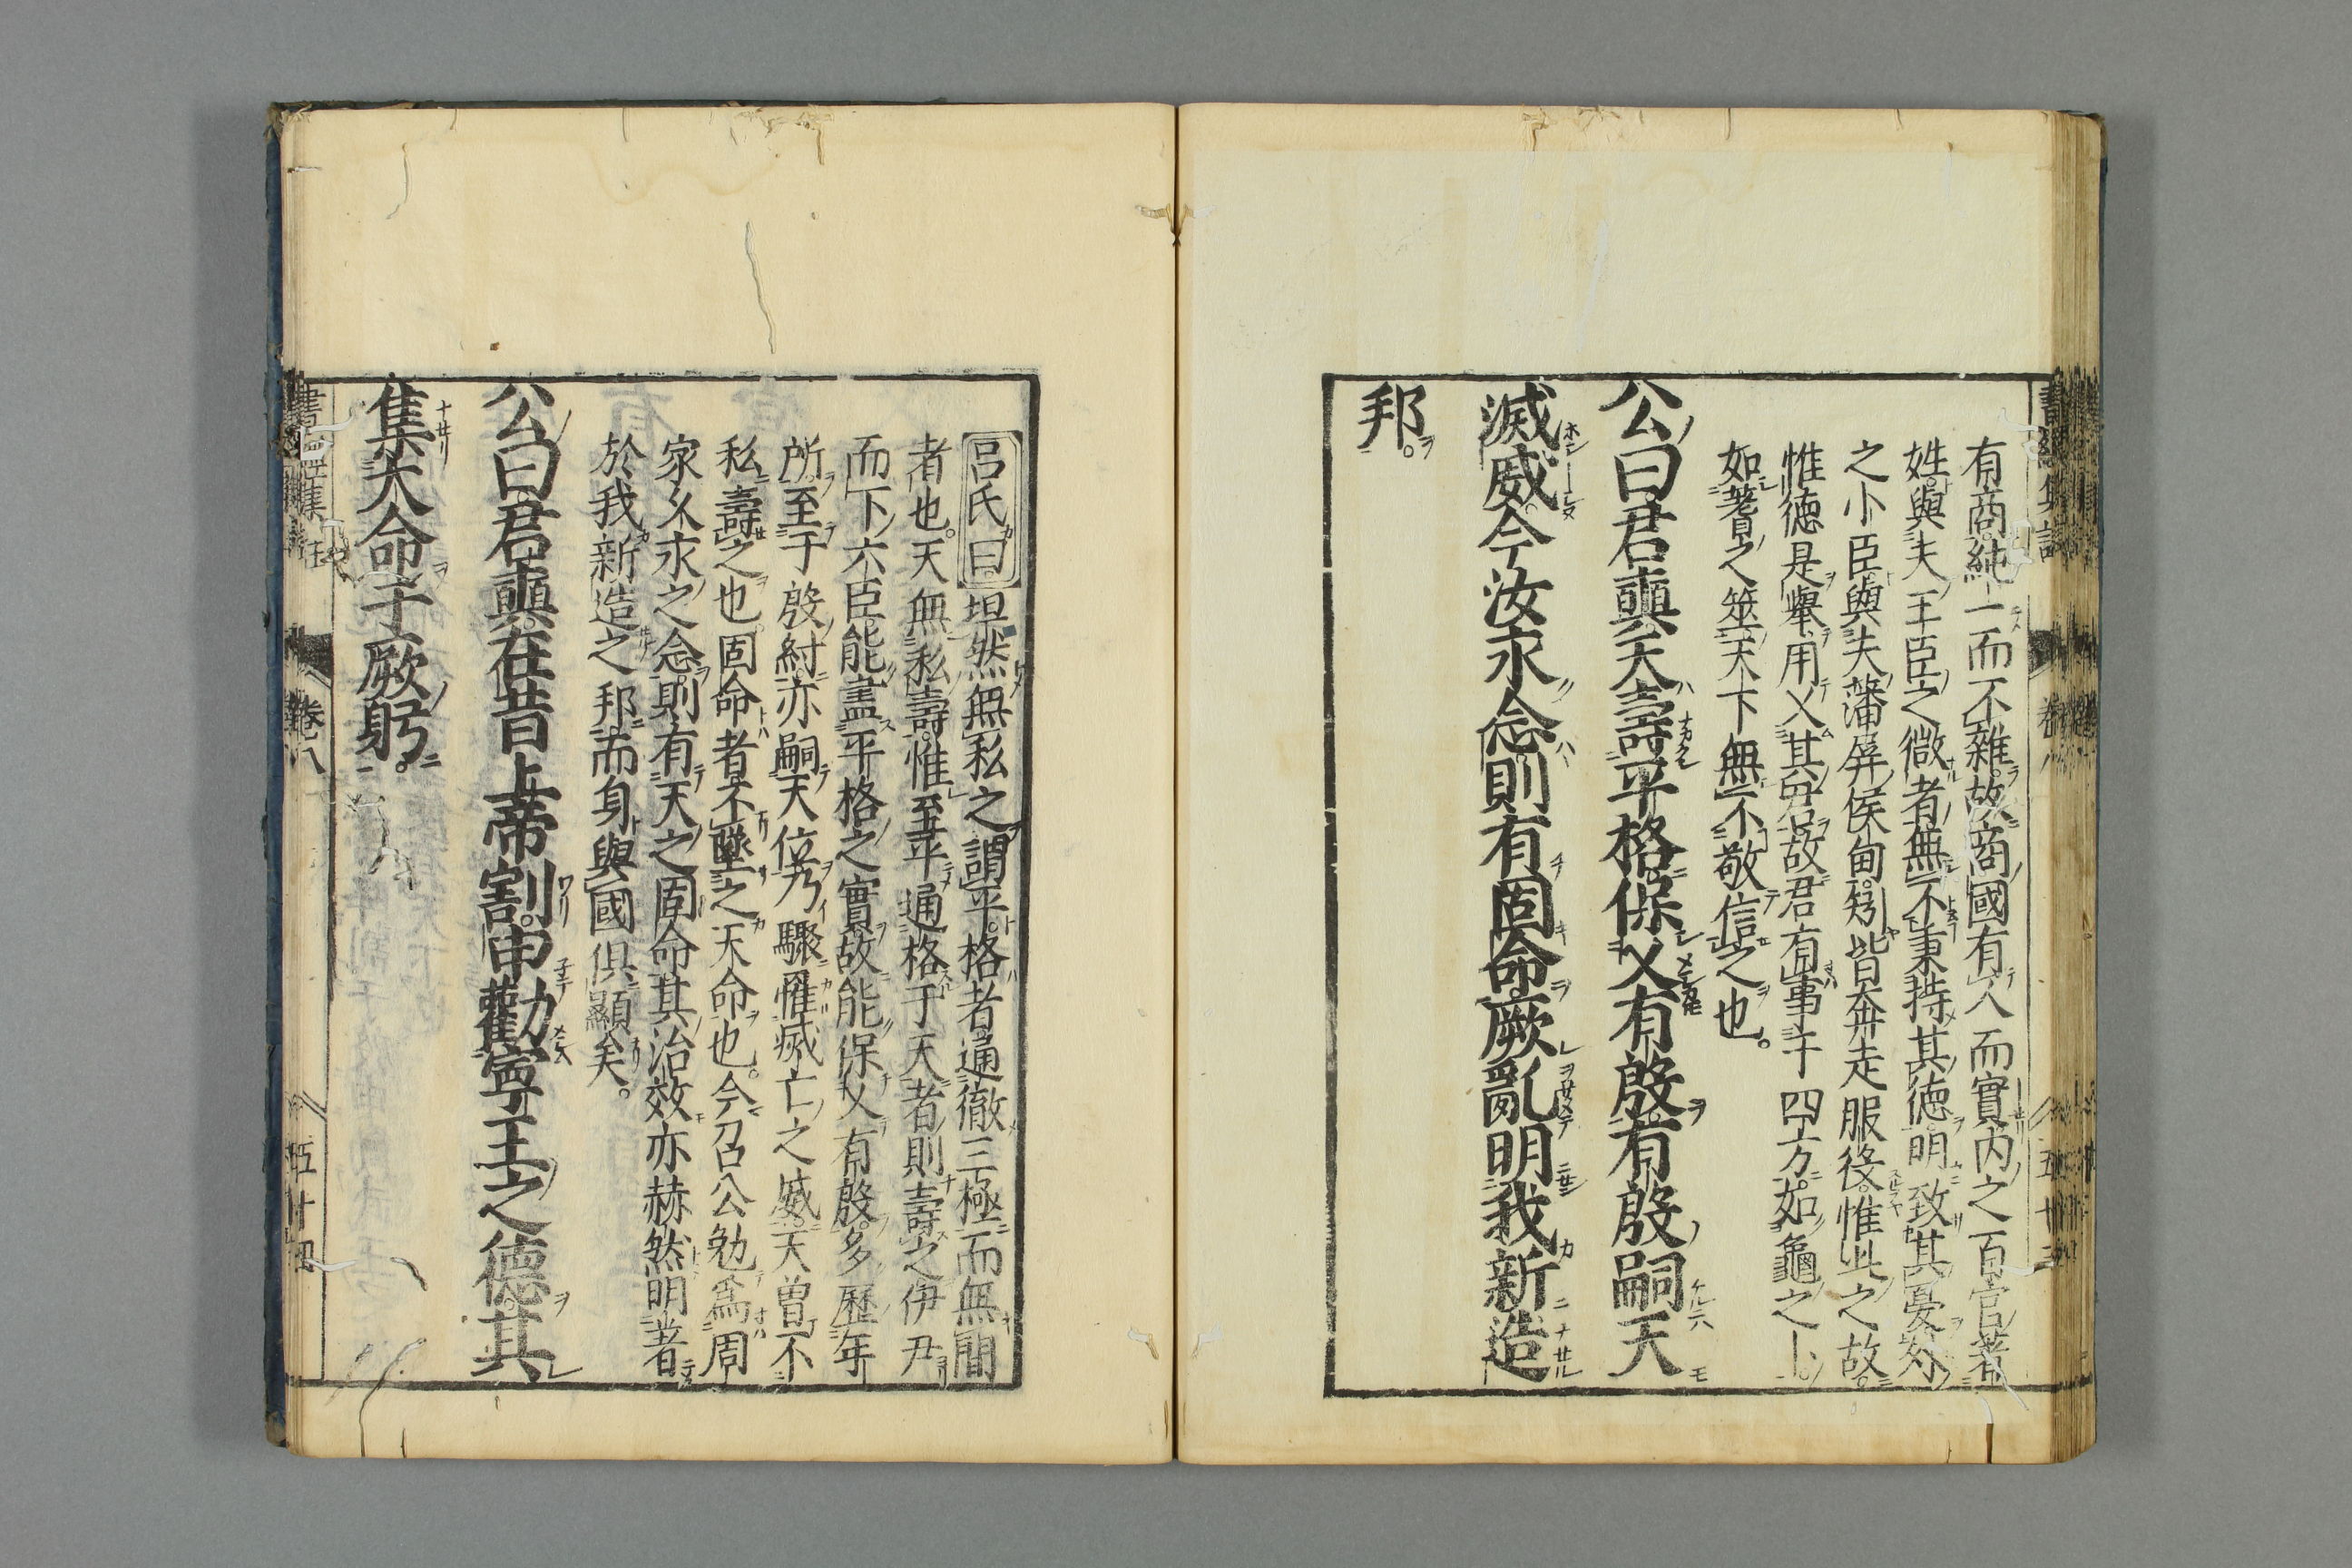 有商純一而不雜故商國有人而實内之百官著
姓與夫王臣之微者無不秉持其德明致其憂外
之小臣與夫藩屏侯甸矧皆奔走服役惟此之故
惟德是舉用乂其君故君有事于四方如龜之卜
如蓍之筮天下無不敬信之也。
公曰君奭天壽平格保乂有殷有殷嗣天
滅威今汝永念則有固命厥亂明我新造
邦。
呂氏曰坦然無私之謂平。格者通徹三極而無間
者也。天無私壽惟至平通格于天者則壽之伊尹
而下六臣能盡平格之實故能保乂有殷多歷年
所至于殷紂亦嗣天位乃驟罹滅亡之威天曾不
私壽之也。固命者不墜之天命也。今召公勉爲周
家久永之念則有天之固命其治效亦赫然明著
於我新造之邦而身與國俱顯矣。
公曰君奭在昔上帝割申勸寧王之德其
集大命于厥躬。
卷八